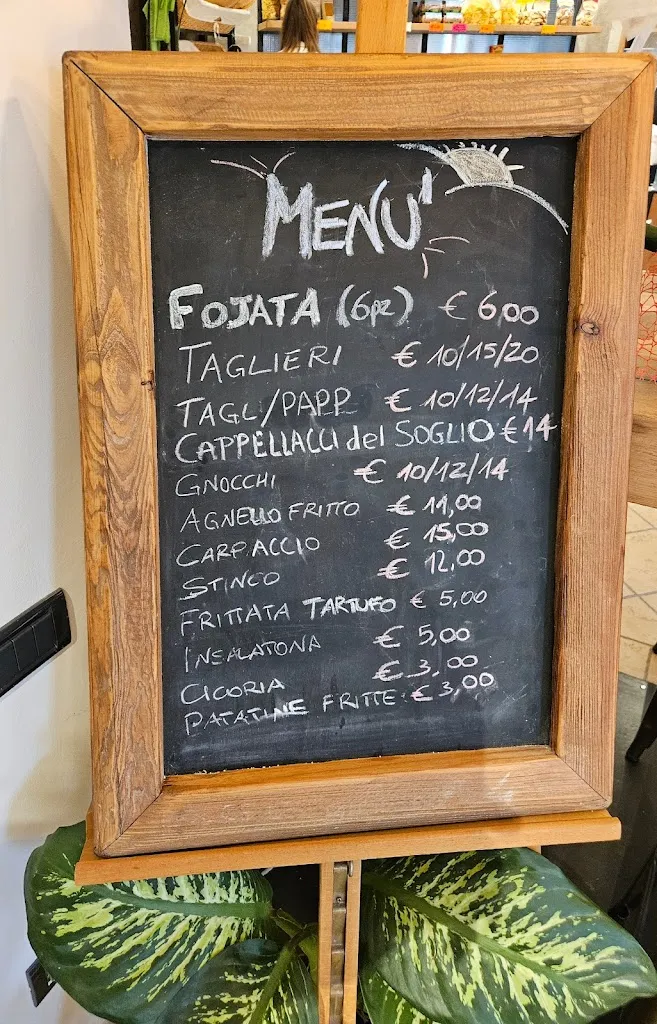 MENU'
FOJATA (6pz) € 6,00
TAGLIERI € 10/15/20
TAGL/PAPP € 10/12/14
CAPPELLACCI del SOGLIO € 14
GNOCCHI € 10/12/14
AGNELLO FRITTO € 14,00
CARPACCIO € 15,00
STINCO € 12,00
FRITTATA TARTUFO € 5,00
INSALATONA € 5,00
CICORIA € 3,00
PATATINE FRITTE € 3,00